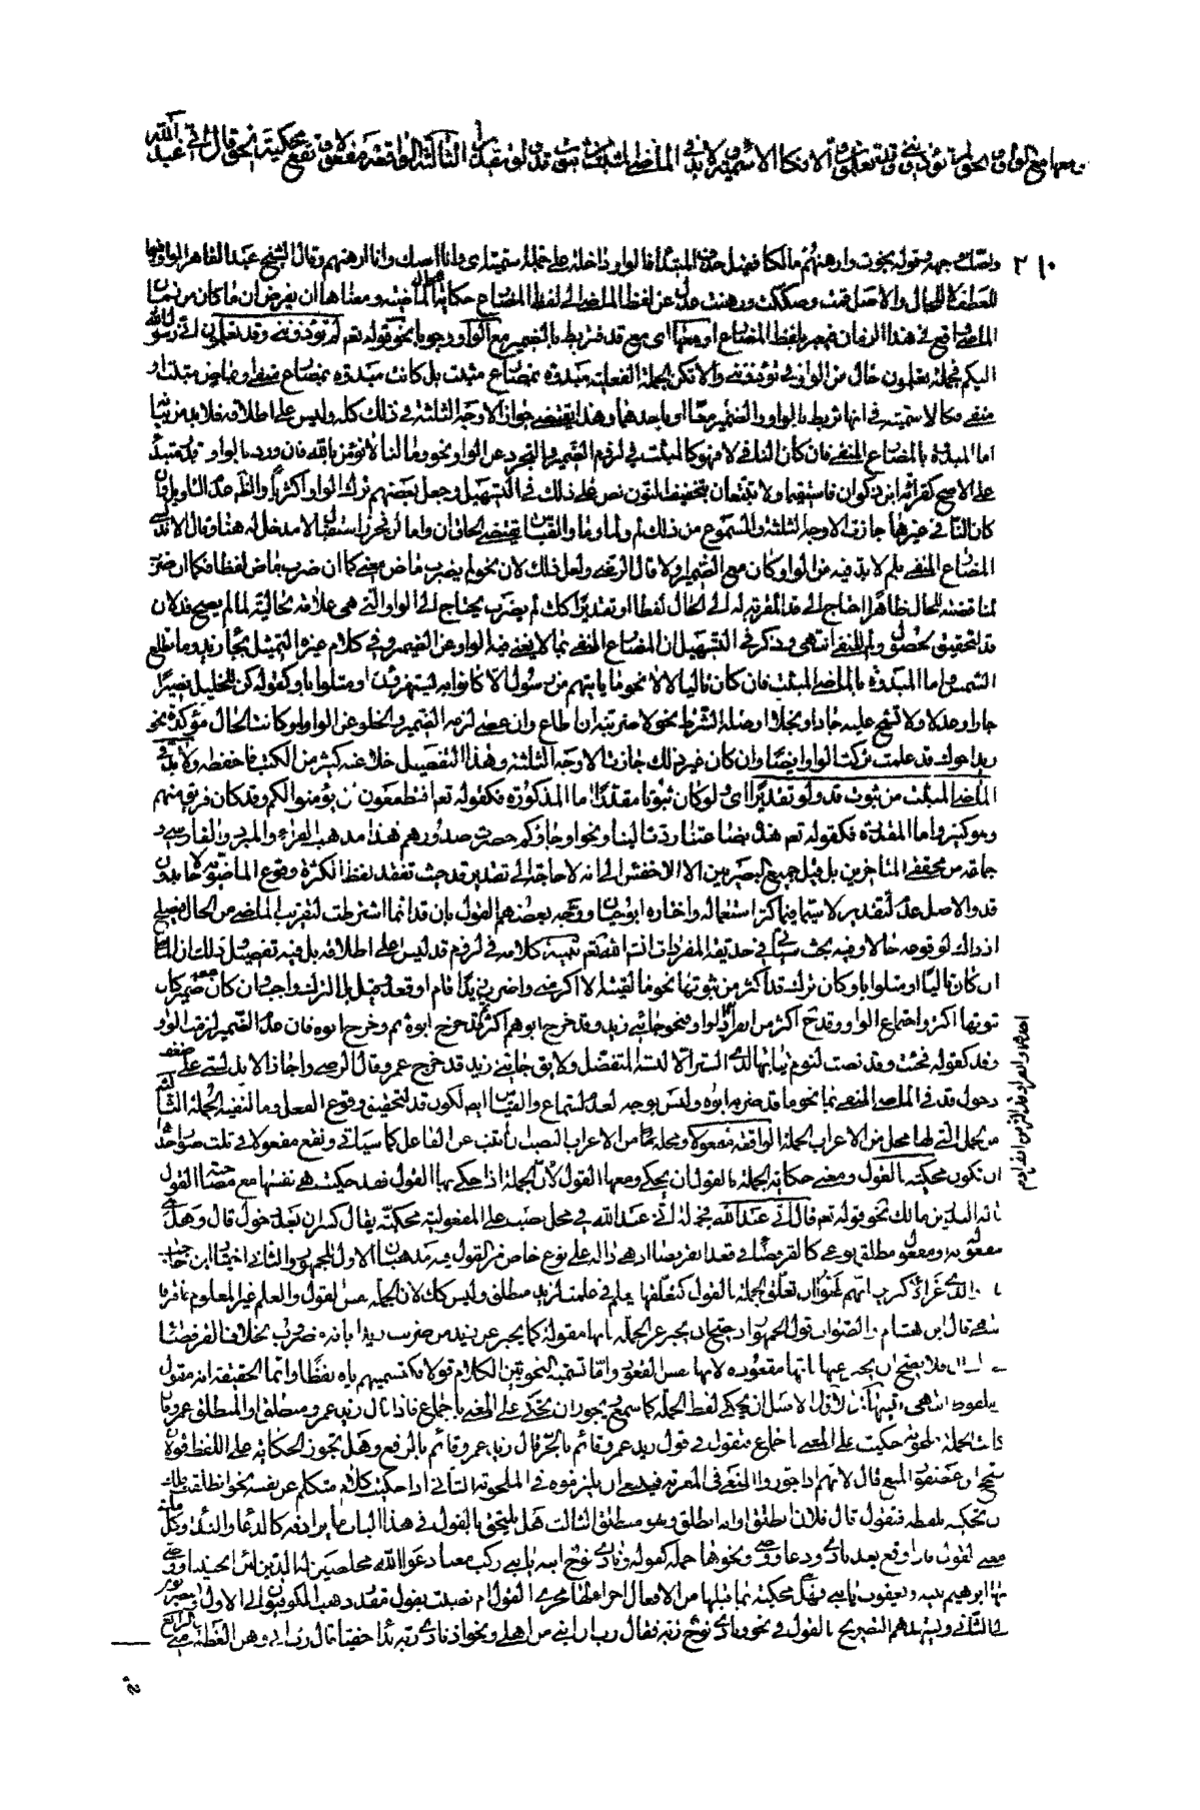 معها مع الواو نحو لم تؤذونني وقد تعلمون الا فكالاسمية ولا بد في الماضي المثبت من قد ولو تقديرا الثالثة الواقعة مفعولا وتقع محكية نحو قال اني عبد الله
٢١٠
وصك وجهه وقوله نجوت وارهنهم مالكا فقيل حذف المبتدأ فالواو داخلة على جملة اسمية اي وانا اصك وانا ارهنهم وقال الشيخ عبد القاهر الواو فيها
للعطف لا للحال والاصل قمت وصككت ورهنت عدل عن لفظ الماضي الى لفظ المضارع حكاية للحال الماضية ومعناها ان يفرض ان ما كان من زمان
الماضي واقع في هذا الزمان فيعبر بلفظ المضارع او معها اي مع قد فتربط بالضمير مع الواو وجوبا نحو قوله تعم لم تؤذونني وقد تعلمون اني رسول الله
اليكم فجملة تعلمون حال من الواو في تؤذونني والا تكن الجملة الفعلية مبدوة بمضارع مثبت بل كانت مبدوة بمضارع منفي او بماض مثبت او
منفي فكالاسمية في انها تربط بالواو والضمير معا او باحدهما وهذا يقتضي جواز الاوجه الثلثة في ذلك كله وليس على اطلاقه فلا بد من بيان
اما المبدوة بالمضارع المنفي فان كان النافي لا فهو كالمثبت في لزوم الضمير والتجرد عن الواو نحو وما لنا لا نؤمن بالله فان ورد بالواو قدر مبتدأ
على الاصح كقراءة ابن ذكوان فاستقيما ولا تتبعان بتخفيف النون نص على ذلك في التسهيل وجعل بعضهم ترك الواو اكثريا والظ عدم التاويل وان
كان النافي غيرها جازت الاوجه الثلثة والمسموع من ذلك لم ولما وما والقياس يقتضي الحاق ان واما لن فحرف استقبال لا مدخل له هنا وقال الاندلسي
المضارع المنفي بلم لا بد فيه من الواو كان مع الضمير او لا قال الرضي ولعل ذلك لان نحو لم يضرب ماض معنى كما ان ضرب ماض لفظا فكما ان ضرب
لمناقضته للحال ظاهرا احتاج الى قد المقربة له الى الحال لفظا او تقديرا كك لم يضرب يحتاج الى الواو التي هي علامة الحالية لما لم يصح قد لان
قد لتحقيق الحصول ولم للنفي انتهى وذكر في التسهيل ان المضارع المنفي بما لا يغني فيه الواو عن الضمير وفي كلام غيره التمثيل بجاء زيد وما تطلع
الشمس واما المبدوة بالماضي المثبت فان كان تاليا لالا نحو ما ياتيهم من رسول الا كانوا به يستهزؤن او متلوا باو كقوله كن للخليل نصيرا
جار او عدلا ولا تشح عليه جاد او بخلا او صلة الشرط نحو لاضربنه ان اطاع وان عصى لزمه الضمير والخلو عن الواو ولو كانت الحال مؤكدة نحو
زيد ابوك قد علمت تركت الواو ايضا وان كان غير ذلك جازت الاوجه الثلثة وهذا التفصيل خلا عنه كثير من الكتب فاحفظه ولا بد في
الماضي المثبت من ثبوت قد ولو تقديرا اي ولو كان ثبوتا مقدرا اما المذكورة فكقوله تعم افتطمعون ان يؤمنوا لكم وقد كان فريق منهم
ونحو كثير واما المقدرة فكقوله تعم هذه بضاعتنا ردت الينا ونحو او جاؤكم حصرت صدورهم هذا مذهب الفراء والمبرد والفارسي و
جماعة من محققي المتاخرين بل قيل جميع البصريين الا الاخفش الى انه لا حاجة الى تقدير قد حيث تفقد لفظا لكثرة وقوع الماضوية حالا بدون
قد والاصل عدم التقدير لا سيما فيما كثر استعماله واختاره ابوحيان ووجه بعضهم القول بان قد انما اشترطت لتقرب الماضي من الحال فيصلح
اذ ذاك لوقوعه حالا وفيه بحث سياتي في حديقة المفردات انش الله تعم تنبيه كلامه في لزوم قد ليس على اطلاقه بل فيه تفصيل وذلك ان الماضي
ان كان تاليا او متلوا باو كان ترك قد اكثر من ثبوتها نحو ما لقيته الا اكرمني واضرب زيدا قام او قعد وقيل بل الترك واجب وان كان معه ضمير كان
ثبوتها اكثر واجتماع الواو وقد ح اكثر من انفراد الواو فنحو جاءني زيد وقد خرج ابوه اكثر ثم قد خرج ابوه ثم وخرج ابوه فان عدم الضمير لزمت الواو
وقد كقوله فجئت وقد نضت لنوم ثيابها لدى الستر الا لبسة المتفضل ولا يق جاءني زيد قد خرج عمرو قال الرضي واجاز الاندلسي على ضعف
دخول قد في الماضي المنفي بما نحو ما قد ضربه ابوه وليس بوجه لعدم السماع والقياس ايض لكون قد لتحقيق وقوع الفعل وما لنفيه الجملة الثالثة
من الجمل التي لها محل من الاعراب الجملة الواقعة مفعولا ومحلها من الاعراب النصب ان لم تنب عن الفاعل كما سياتي وتقع مفعولا في ثلث مواضع احدها
ان تكون محكية بالقول ومعنى حكاية الجملة بالقول ان يحكى ومعها القول لان الجملة اذا حكى بها القول فقد حكيت هي نفسها مع مصاحبة القول
قاله البدر بن مالك نحو قوله تعم قال اني عبد الله فجملة اني عبد الله في محل نصب على المفعولية محكية بقال كسران بعد دخول قال وهل هي
مفعول به او مفعول مطلق نوعي كالقرفصاء في قعد القرفصاء اذ هي دالة على نوع خاص من القول فيه مذهبان الاول للجمهور والثاني اختيار ابن حاجب
قال والذي غر الاكثرين انهم ظنوا ان تعلق الجملة بالقول كتعلقها بعلم في علمت لزيد منطلق وليس كك لان الجملة نفس القول والعلم غير المعلوم فافترقا
انتهى قال ابن هشام والصواب قول الجمهور اذ يصح ان يخبر عن الجملة بانها مقولة كما يخبر عن زيد من ضربت زيدا بانه مضروب بخلاف القرفصاء
في المثال فلا يصح ان يخبر عنها بانها مقعودة لانها نفس القعود واما تسمية النحويين الكلام قولا فكتسميتهم اياه لفظا وانما الحقيقة انه مقول
وملفوظ انتهى تنبيهات الاول الاصل ان يحكى لفظ الجملة كما سمع ويجوز ان يحكى على المعنى باجماع فاذا قال زيد عمرو منطلق او المنطلق عمرو فان
كانت الجملة ملحونة حكيت على المعنى باجماع فتقول في قول زيد عمرو قائم بالجر قال زيد عمرو قائم بالرفع وهل تجوز الحكاية على اللفظ قولان
صحح ابن عصفور المنع قال لانهم اذا جوزوا المعنى في المعربة فينبغي ان يلتزموه في الملحونة الثاني اذا حكيت كلام متكلم عن نفسه نحو انطلقت فلك
ان تحكيه بلفظه فتقول قال فلان انطلقت او انه انطلق وهو منطلق الثالث هل يلحق بالقول في هذا الباب ما يرادفه كالدعاء والنداء وكل ما فيه
معنى القول فاذا وقع بعد نادى ودعا ووصى ونحوها جملة كقوله ونادى نوح ابنه يا بني اركب معنا دعوا الله مخلصين له الدين لئن انجيتنا ووصى
بها ابراهيم بنيه ويعقوب يا بني فهل محكية بما قبلها من الافعال اجراء لها مجرى القول ام نصبت بقول مقدر ذهب الكوفيون الى الاول والبصريون
الى الثاني ويشهد لهم التصريح بالقول في نحو ونادى نوح ربه فقال رب ان ابني من اهلي ونحو اذ نادى ربه نداء خفيا قال رب اني وهن العظم مني الرابع